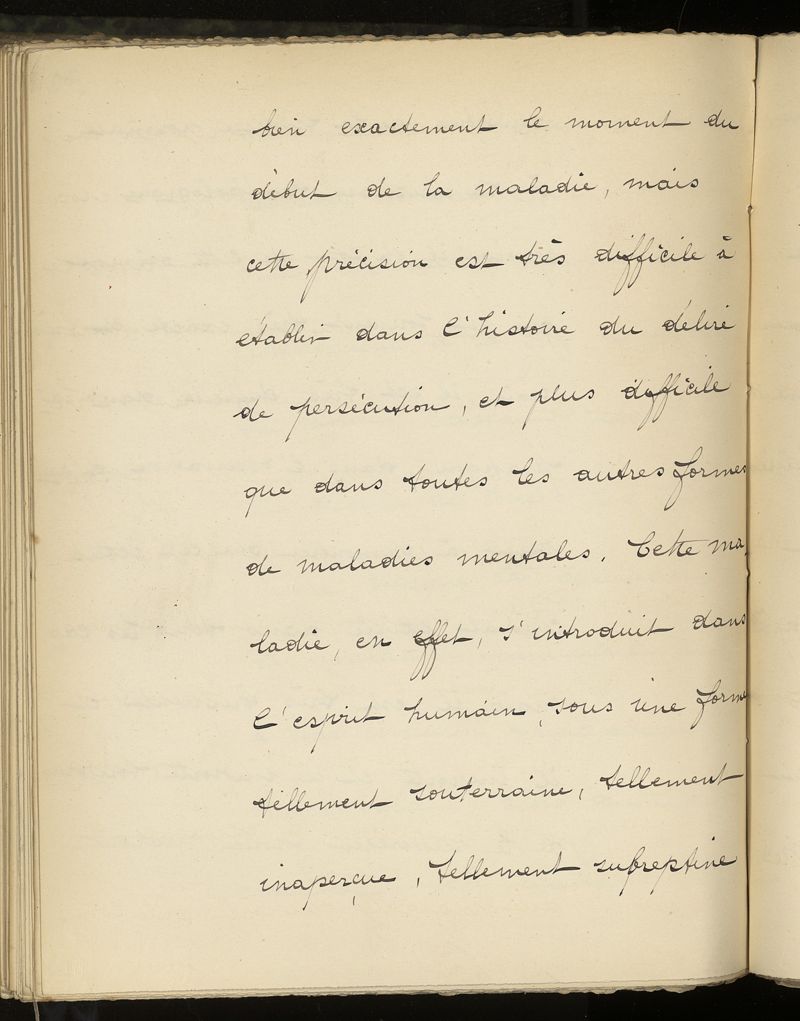 bien exactement le moment du
début de la maladie, mais
cette précision est très difficile à
établir dans l'histoire du délire
de persécution, et plus difficile
que dans toutes les autres formes
de maladies mentales. Cette ma-
ladie, en effet, s'introduit dans
l'esprit humain, sous une forme
tellement souterraine, tellement
inaperçue, tellement subreptine